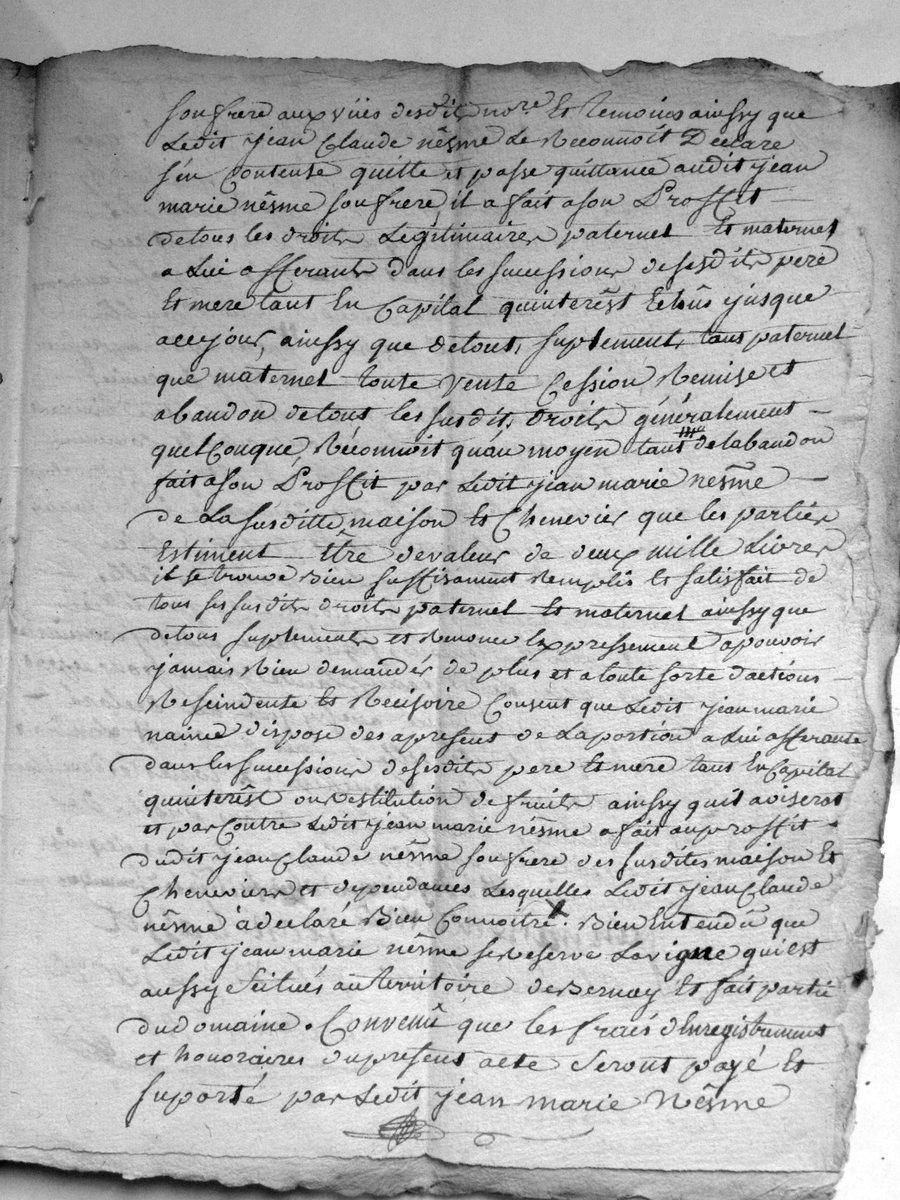 son frere aux vües desdits no.re Et temoins ainssy que
Ledit jean Claude nêsme Le Reconnoit Declare
s'en Contente quitte et passe quittance audit jean
marie nêsme son frere il a fait a son Proffit
de tous les droits Légitimaires paternel Et maternel
a Lui afferants dans les successions desesdits pere
Et mere tant En Capital qu'interêst Echûs jusque
acejour, ainssy que detous, suplement, tans paternel
que maternel toute vente Cession Remise et
abandon detous les susdits, droits généralement
quelConque, Réconnoit qu'au moyen de labandon
fait a son Proffit par Ledit jean marie nesme
de La susditte maison Et Chenevier que les parties
Estiment Être devaleur de deux mille Livres
il se trouve Bien suffisament Remplis Et satisfait de
tous ses susdits droits paternel Et maternel ainssy que
detous suplements et Renonce Expressement apouvoir
jamais Rien demander de plus et atoute sorte d'actions
Rescindente Et Recisoire Consent que Ledit jean marie
naime dispose des apresent de La portion a Lui afferante
dans les successions desesdits pere Et mere tans En Capital
quinterêst ou Restitution de fruits ainssy quil aviserat
et par Contre Ledit jean marie nêsme a fait au proffit
dudit jean Claude nêsme son frere des susdites maison Et
Cheneviers et dependances Lesquelles Ledit jean Claude
nêsme à declaré Bien Connoitre. Bien Entendû que
Ledit jean marie nêsme se Reserve La vigne qui est
aussy Scitués au territoire de Bernay Et fait partie
du domaine. Convenû que les frais d'Enregistrement
et honoraires du present acte Seront payé Et
suporté par Ledit jean marie Nêsme